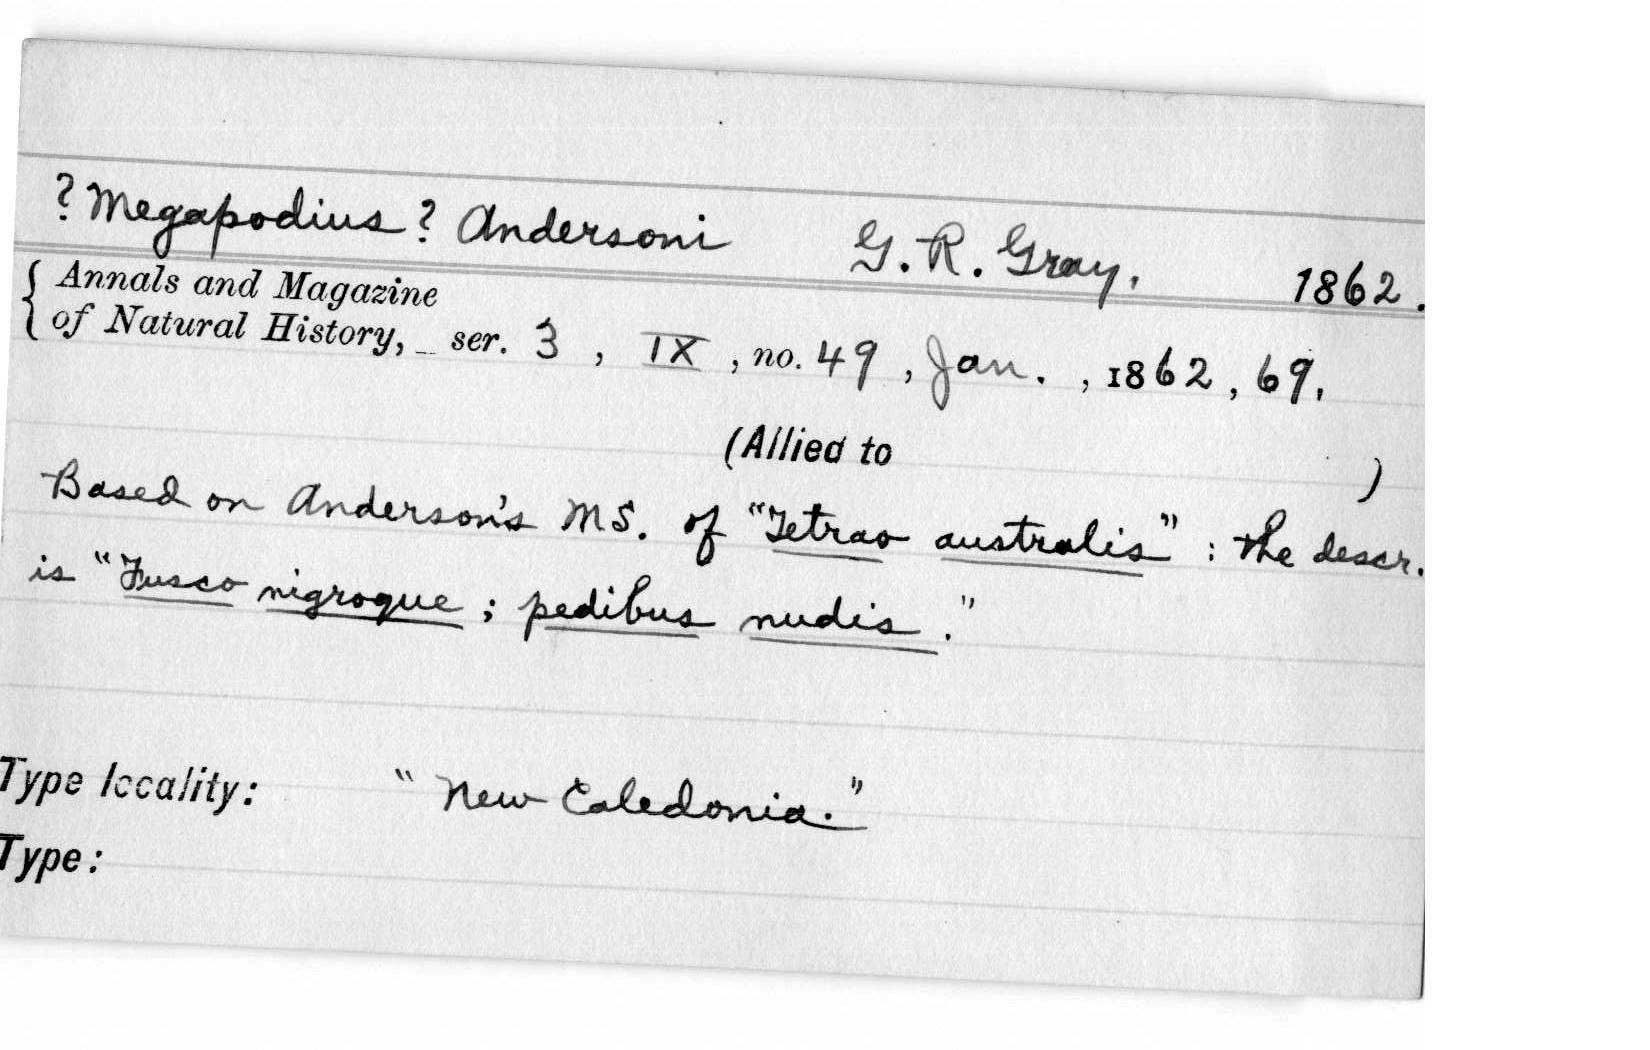 ? Megapodius ? Andersoni G. R. Gray, 1862.
{ Annals and Magazine
of Natural History, _ ser. 3, IX, no. 49, Jan., 1862, 69.
(Allied to )
Based on Anderson's MS. of "Tetrao australis" : the descr.
is "Fusco nigroque ; pedibus nudis."
Type locality: "New Caledonia."
Type: